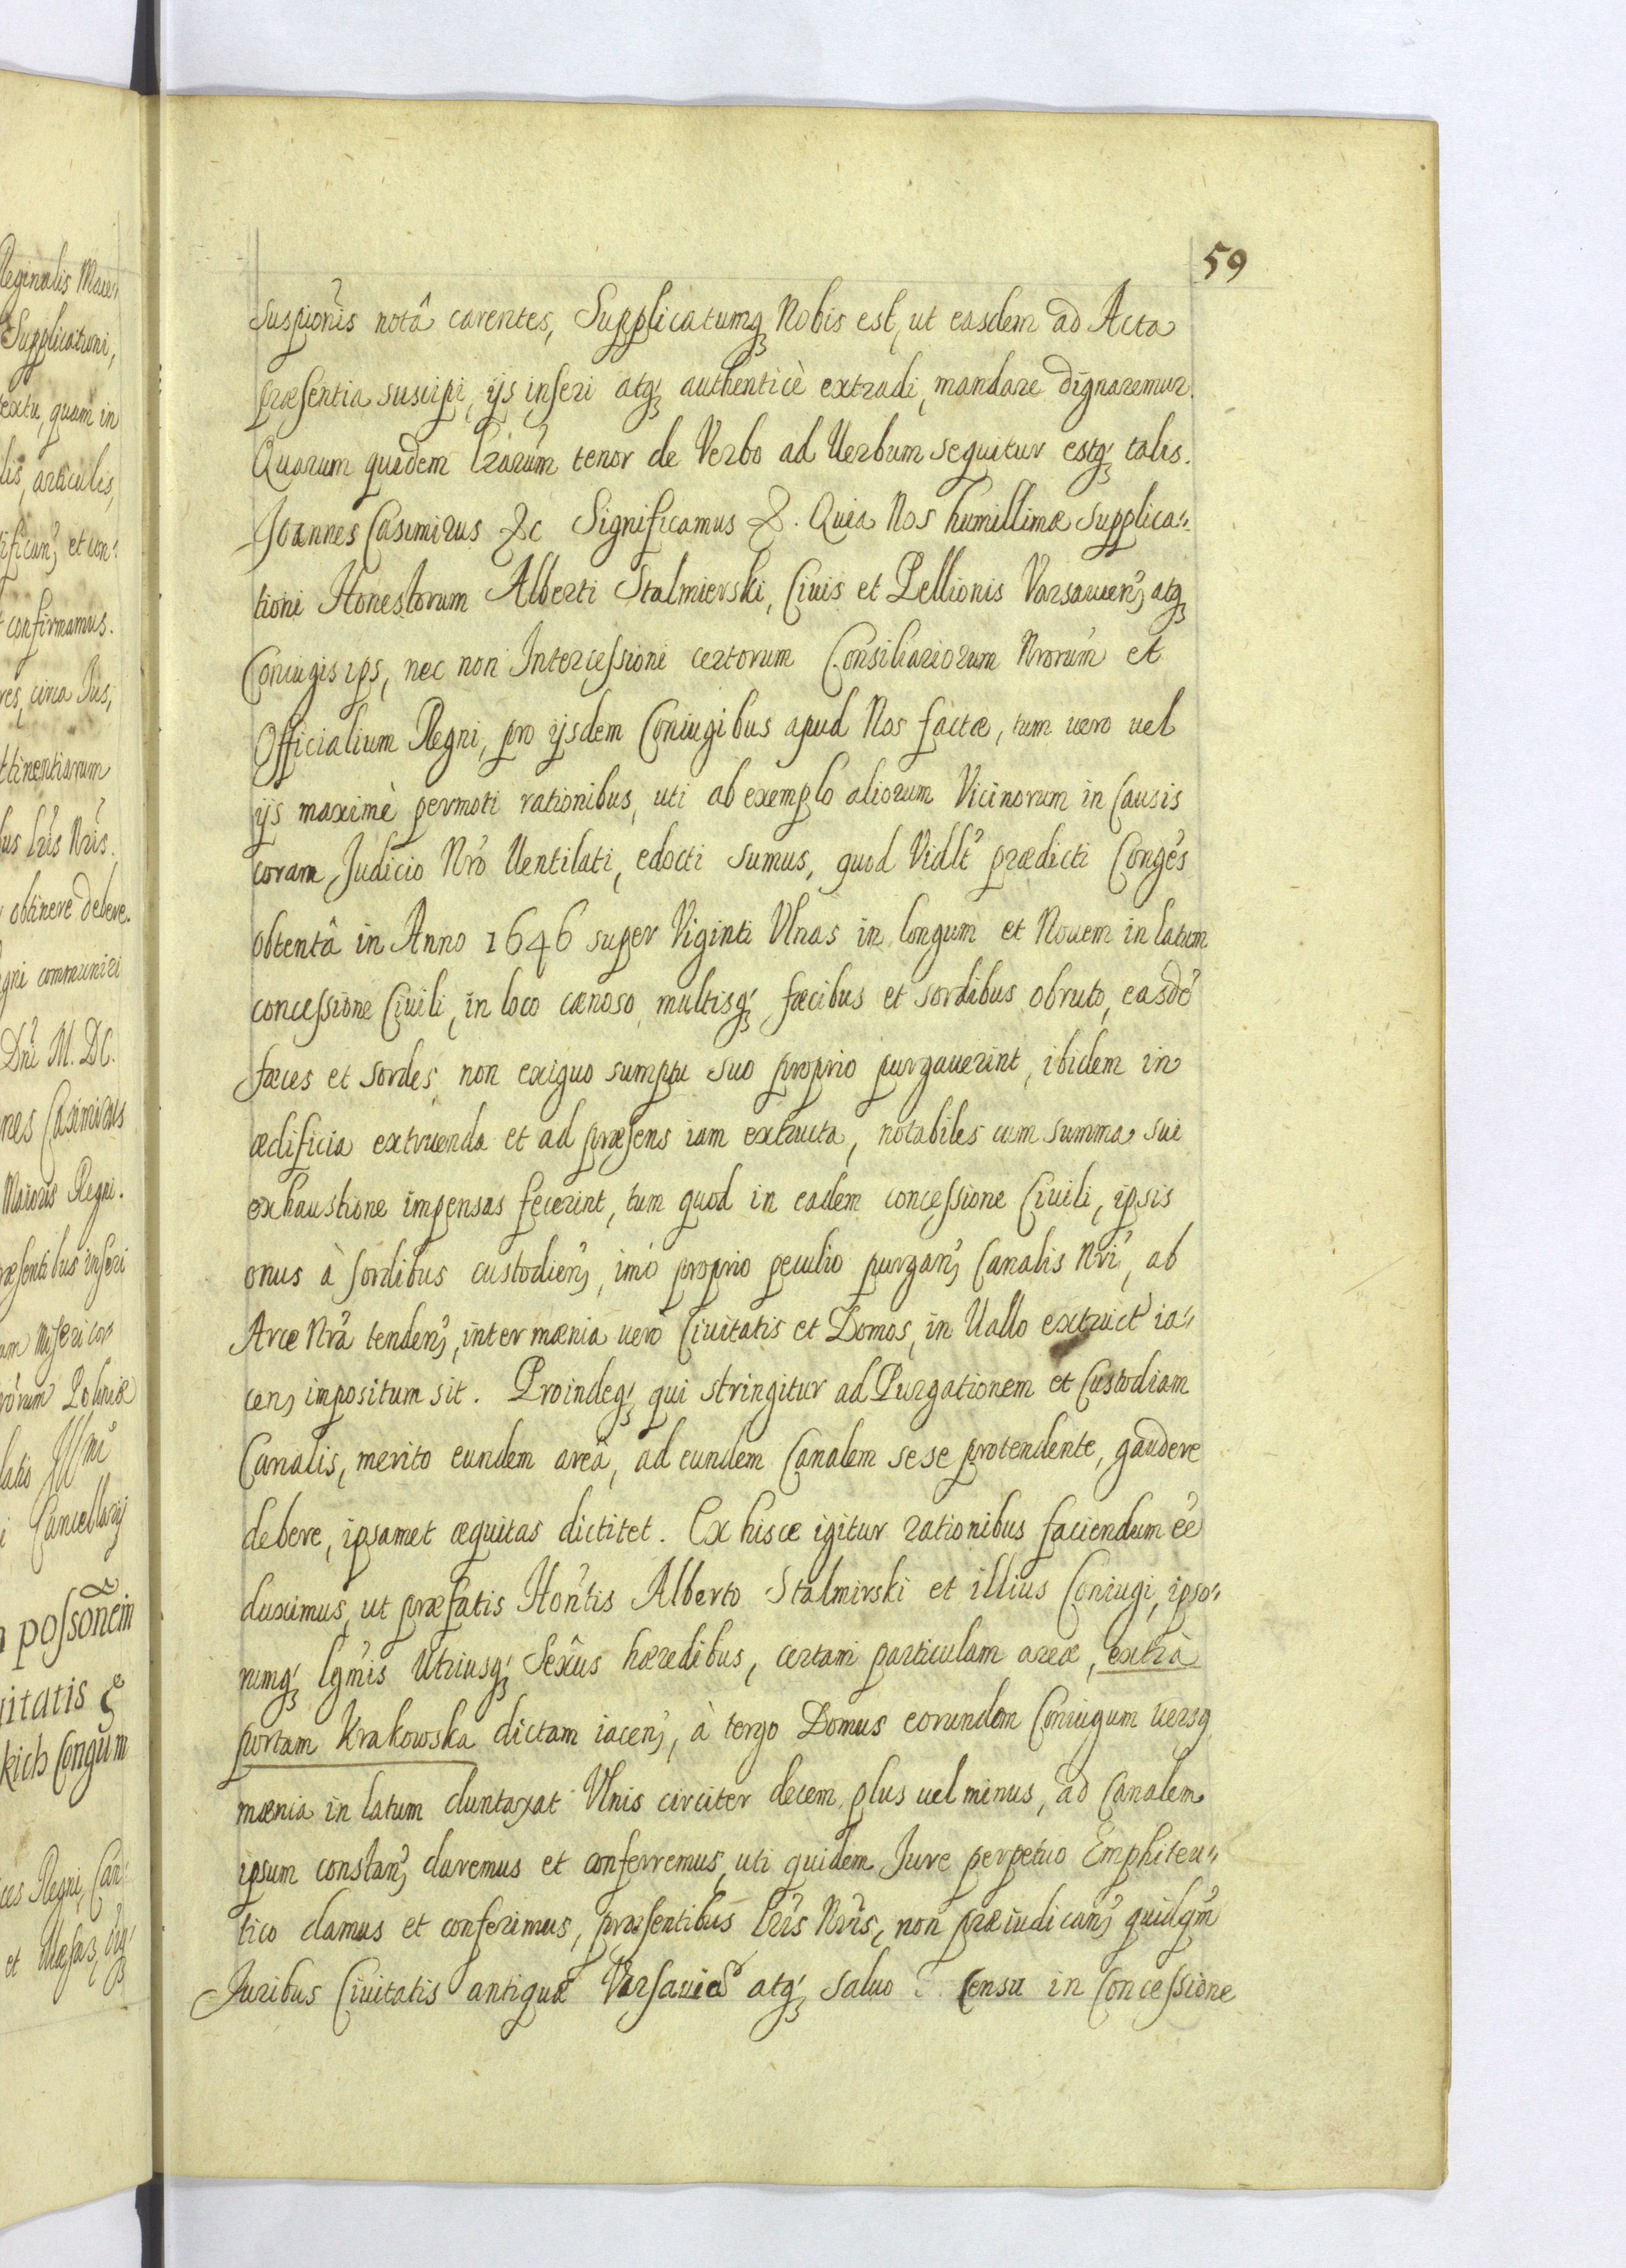 59
suspiõis notâ carentes, Supplicatumq Nobis est, ut easdem ad Acta
præsentia suscipi, ijs inseri atq authenticè extradi, mandare dignaremur.
Quarum quidem Lrarum tenor de Verbo ad Uerbum sequitur estq talis.
Joannes Casimirus &c Significamus &. Quia Nos humillimæ supplica„
tioni Honestorum Alberti Stalmierski, Ciuis et Pellionis Varsauien, atq
Coniugis ips, nec non Intercessioni certorum Consiliariorum Nrorum et
Officialium Regni, pro ijsdem Coniugibus apud Nos factæ, tum uero uel
ijs maximè permoti rationibus, uti ab exemplo aliorum Vicinorum in Causis
coram Judicio Nro Uentilati, edocti sumus, quod Vidlt prædicti Conges
obtentâ in Anno 1646 super Viginti Vlnas in longum et Nouem in latum
concessione Ciuili, in loco cænoso multisq fæcibus et sordibus obruto, easdẽ
fæces et sordes, non exiguo sumptu suo proprio purgauerint, ibidem in
ædificia extruenda et ad præsens iam extructa, notabiles cum summa sui
exhaustione impensas fecerint, tum quod in eadem concessione Ciuili, ipsis
onus à sordibus custodien, imò proprio peculio purgan, Canalis Nri, ab
Arce Nra tenden, inter mænia uero Ciuitatis et Domos, in Uallo extruct ia„
cen, impositum sit. Proindeq qui stringitur ad Purgationem et Custodiam
Canalis, merito eundem areâ, ad eundem Canalem sese protendente, gaudere
debere, ipsamet æquitas dictitet. Ex hisce igitur rationibus faciendum ẽe
duximus, ut præfatis Hontis Alberto Stalmirski et illius Coniugi, ipso„
rumq lgmis Utriusq Sexûs hæredibus, certam particulam areæ, extra
portam Krakowska dictam iacen, à tergo Domus eorundem Coniugum uersq
mænia in latum duntaxat Vlnis circiter decem plus uel minus, ad Canalem
ipsum constan, daremus et conferremus, uti quidem Jure perpetuo Emphiteu„
tico damus et conferimus, præsentibus Lris Nris, non præiudican, quidqm
Juribus Ciuitatis antiquæ Varsauiæ atq saluo Censu in Concessione